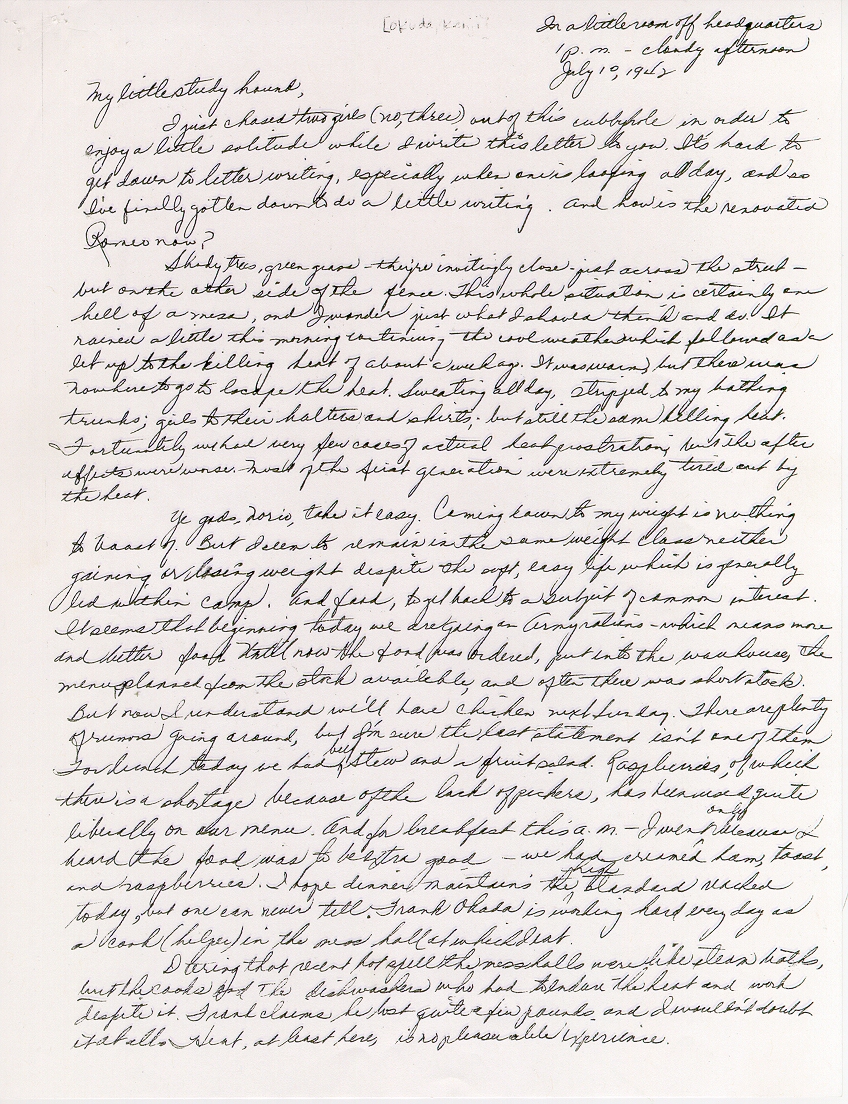 [Okuda, Kenji]
In a little room off headquarters
1 p.m. - cloudy afternoon
July 10, 1942
My little study hound,
I just chased two girls (no, three) out of this cubbyhole in order to
enjoy a little solitude while I write this letter to you. It's hard to
get down to letter writing, especially when one is loafing all day, and so
I've finally gotten down to do a little writing. And how is the renovated
Romeo now?
Shady trees, green grass - they're invitingly close - just across the street -
but on the other side of the fence. This whole situation is certainly one
hell of a mess, and I wonder just what I should think and do. It
rained a little this morning continuing the cool weather which followed as a
let up to the killing heat of about a week ago. It was warm, but there was
nowhere to go to escape the heat. Sweating all day, stripped to my bathing
trunks; girls to their halters and shirts; but still the same killing heat.
Fortunately we had very few cases of actual heat prostration, but the after
affects were worse. Most of the first generation were extremely tired out by
the heat.
Ye gods, Norio, take it easy. Coming down to my weight is nothing
to boast of. But I seem to remain in the same weight class neither
gaining or losing weight despite the soft, easy life which is generally
led within camp. And food, to get back to a subject of common interest.
It seems that beginning today we are going on Army rations - which means more
and better food. Until now the food was ordered, put into the warehouses, the
menus planned from the stock available, and often there was short stock.
But now I understand we'll have chicken next Sunday. There are plenty
of rumors going around, but I'm sure the last statement isn't one of them
For lunch today we had beef stew and a fruit salad. Raspberries, of which
there is a shortage because of the lack of pickers, has been used quite
liberally on our menu. And for breakfast this a.m. - I went only because I
heard the food was to be extra good - we had creamed ham, toast,
and raspberries. I hope dinner maintains the high standard reached
today, but one can never tell. Frank Okada is working hard every day as
a cook (helper) in the mess hall at which I eat.
During that recent hot spell the messhalls were like steam baths,
but the cooks and the dishwashers who had to endure the heat and work
despite it. Frank claims he lost quite a few pounds, and I wouldn't doubt
it at all. Heat, at least here, is no pleasurable experience.